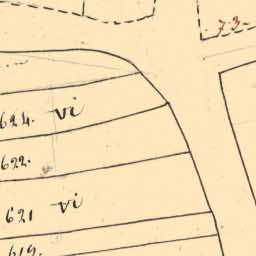 73.
624. Vi
622.
621 Vi
619.